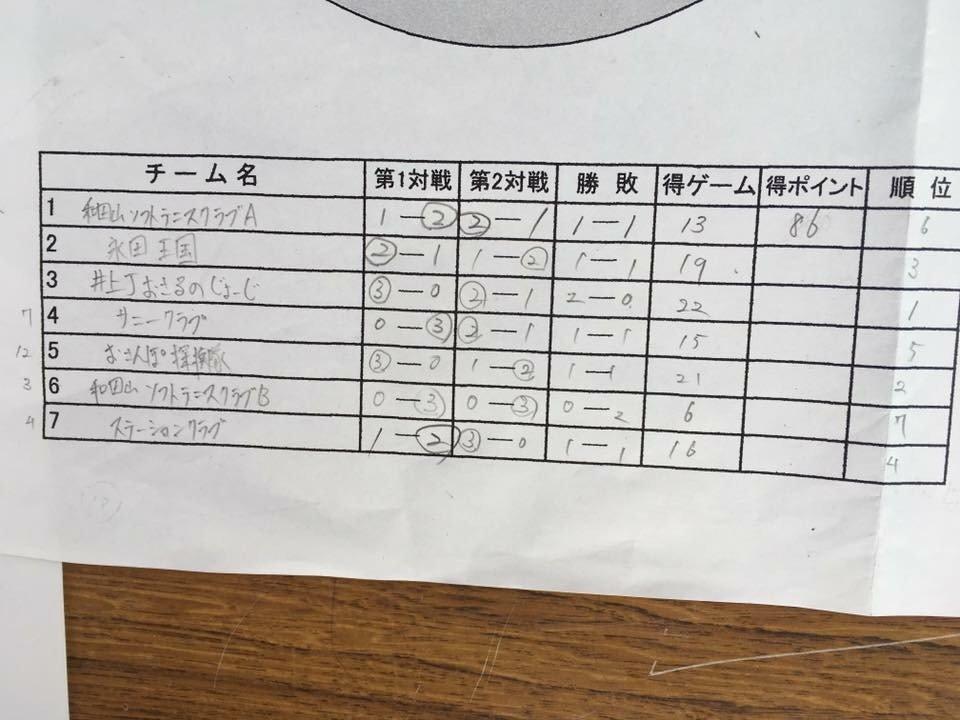 チーム名 第1対戦 第2対戦 勝敗 得ゲーム 得ポイント 順位
1 和田山ソフトテニスクラブA 1-② ②-1 1-1 13 86 6
2 永田王国 ②-1 1-② 1-1 19 3
3 井上丁おさるのじょーじ ③-0 ②-1 2-0 22 1
7 4 サニークラブ 0-③ ②-1 1-1 15 5
12 5 おさんぽ探検隊 ③-0 1-② 1-1 21 2
3 6 和田山ソフトテニスクラブB 0-③ 0-③ 0-2 6 7
4 7 ステーションクラブ 1-② ③-0 1-1 16 4